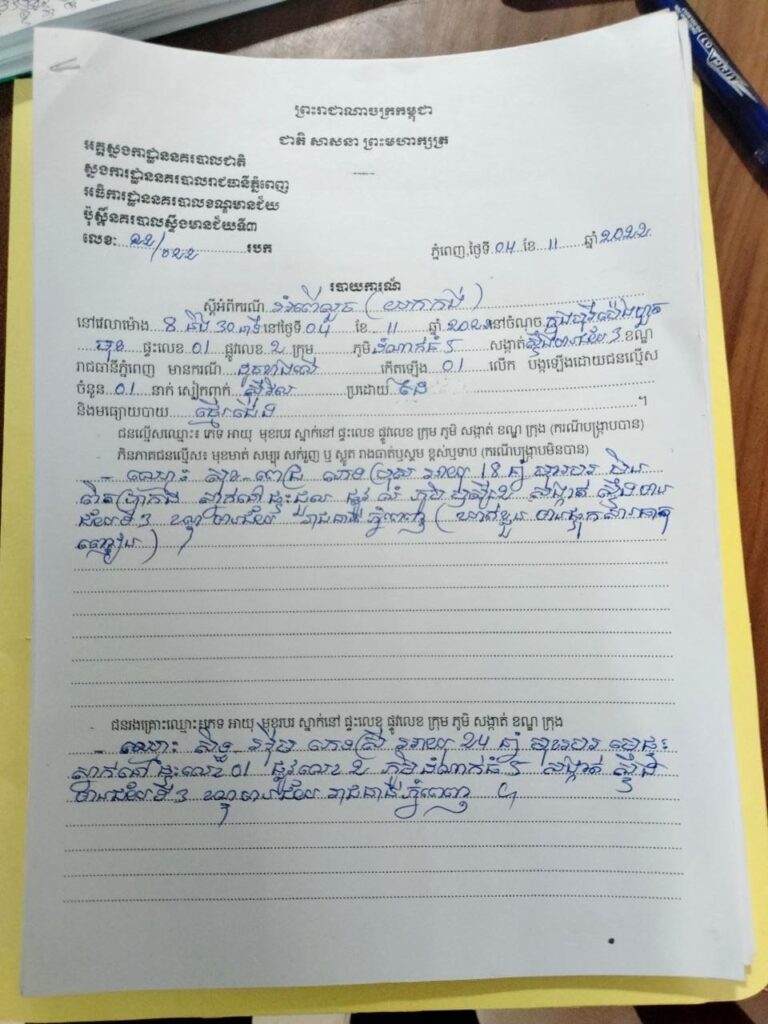 ព្រះរាជាណាចក្រកម្ពុជា
ជាតិ សាសនា ព្រះមហាក្សត្រ
អគ្គស្នងការដ្ឋាននគរបាលជាតិ
ស្នងការដ្ឋាននគរបាលរាជធានីភ្នំពេញ
អធិការដ្ឋាននគរបាលខណ្ឌមានជ័យ
ប៉ុស្តិ៍នគរបាលស្ទឹងមានជ័យទី៣
លេខៈ ២២/០២២ របក
ភ្នំពេញ,ថ្ងៃទី 04 ខែ 11 ឆ្នាំ 2022
របាយការណ៍
ស្តីអំពីករណី អំពើលួច (
នៅវេលាម៉ោង 8 និង 30 នាទី នៅថ្ងៃទី 04 ខែ 11 ឆ្នាំ 2022 នៅចំណុច
មុខ ផ្ទះលេខ 01 ផ្លូវលេខ 2 ក្រុម ភូមិ ដំណាក់ធំ 5 សង្កាត់ ស្ទឹងមានជ័យ 3 ខណ្ឌ
រាជធានីភ្នំពេញ មានករណី ដូចខាងលើ កើតឡើង 01 លើក បង្កឡើងដោយជនល្មើស
ចំនួន 01 នាក់ សៀកពាក់ ស៊ីវិល ប្រដោយ ដៃ
និងមធ្យោបាយ ថ្មើរជើង ។
ជនល្មើសឈ្មោះ ភេទ អាយុ មុខរបរ ស្នាក់នៅ ផ្ទះលេខ ផ្លូវលេខ ក្រុម ភូមិ សង្កាត់ ខណ្ឌ ក្រុង (ករណីបង្ក្រាបបាន)
ភិនភាគជនល្មើស៖ មុខមាត់ សម្បុរ សក់រួញ ឬ ស្តូត រាងធាត់ឬស្គម ខ្ពស់ឬទាប (ករណីបង្ក្រាបមិនបាន)
- ឈ្មោះ សុខ-ពេជ្រ ភេទ ប្រុស អាយុ 18 ឆ្នាំ មុខរបរ មិន
ពិតប្រាកដ ស្នាក់នៅ ផ្ទះជួល ផ្លូវ លំ ភូមិ ឫស្សី សង្កាត់ ស្ទឹងមាន
ជ័យទី 3 ខណ្ឌ មានជ័យ រាជធានីភ្នំពេញ (ឃាត់ខ្លួន មានផ្ទុកសារធាតុ
ញៀន)
ជនរងគ្រោះឈ្មោះ ភេទ អាយុ មុខរបរ ស្នាក់នៅ ផ្ទះលេខ ផ្លូវលេខ ក្រុម ភូមិ សង្កាត់ ខណ្ឌ ក្រុង
- ឈ្មោះ ភេទស្រី អាយុ 24 ឆ្នាំ មុខរបរ មេផ្ទះ
ស្នាក់នៅ ផ្ទះលេខ 01 ផ្លូវលេខ 2 ភូមិ ដំណាក់ធំ 5 សង្កាត់ ស្ទឹង
មានជ័យទី 3 ខណ្ឌមានជ័យ រាជធានីភ្នំពេញ